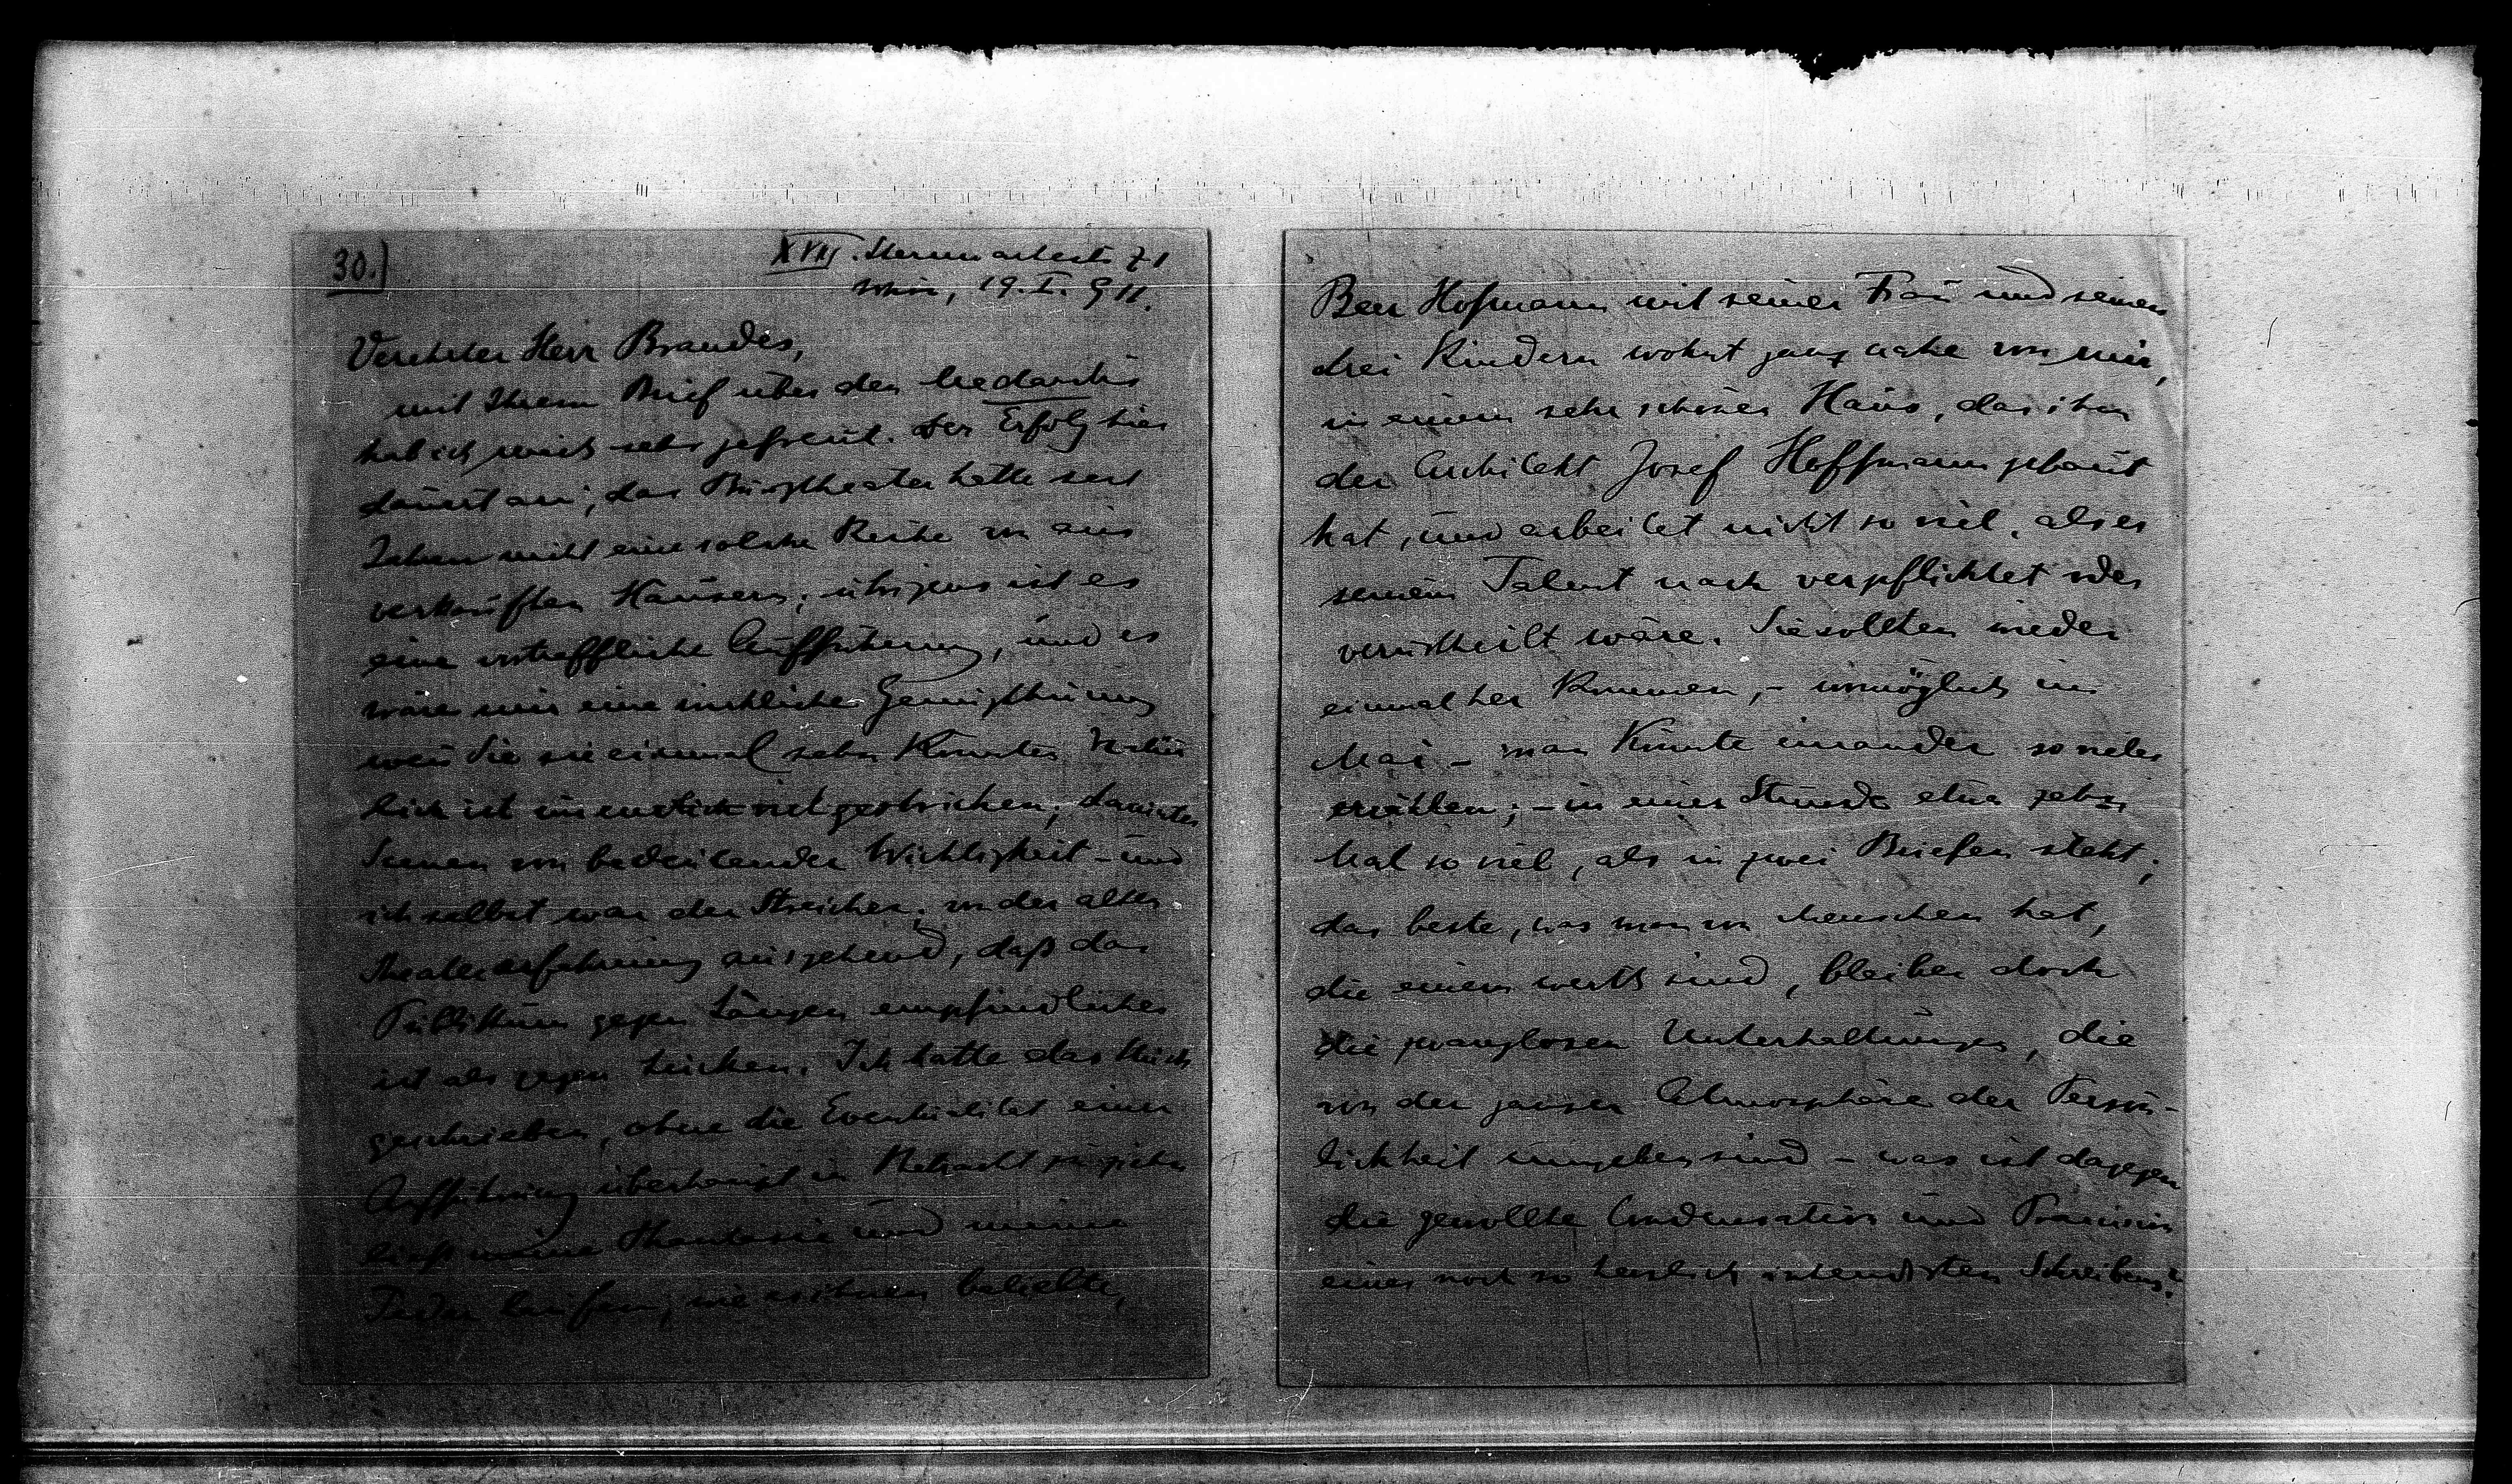 30.)
XVIII. Sternwartestr 71
Wien, 19. I. 911.
Verehrter Herr Brandes,
mit Ihrem Brief über den Medardus
hab ich mich sehr gefreut. Der Erfolg hier
dauert an; das Burgtheater hatte seit
Jahren nicht eine solche Reihe von aus
verkauften Häusern; übrigens ist es
eine vortreffliche Aufführung, und es
wäre mir eine wirkliche Genugthuung
wen Sie sie einmal sehn könnten. Natür
lich ist unendlich viel gestrichen; darunter
Scenen von bedeutender Wichtigkeit – und
ich selbst war der Streicher; von der alten
Theatererfahrung ausgehend, daß das
Publikum gegen Längen empfindlicher
ist als gegen Lücken. Ich hatte das Stück
geschrieben, ohne die Eventualität einer
Aufführung überhaupt in Betracht zu ziehn
ließ meine Phantasie und meine
Feder laufen, wie es ihnen beliebte,
Beer Hofmann mit seiner Frau und seinen
drei Kindern wohnt ganz nahe von mir,
in einem sehr schönen Haus, das ihm
der Architekt Josef Hoffmann gebaut
hat, und arbeitet nicht so viel, als er
seinem Talent nach verpflichtet oder
verurtheilt wäre. Sie sollten wieder
einmal her kommen, – womöglich im
Mai – man könnte einander so vieles
erzählen; – in einer Stunde etwa zehn
Mal so viel, als in zwei Briefen steht;
das beste, was man von Menschen hat,
die einem werth sind, bleiben doch
die zwanglosen Unterhaltungen, die
von der ganzen Atmosphäre der Persön-
lichkeit umgeben sind – was ist dagegen
die gewollte Condensation und Präcision
eines noch so herzlich intendirten Schreibens?